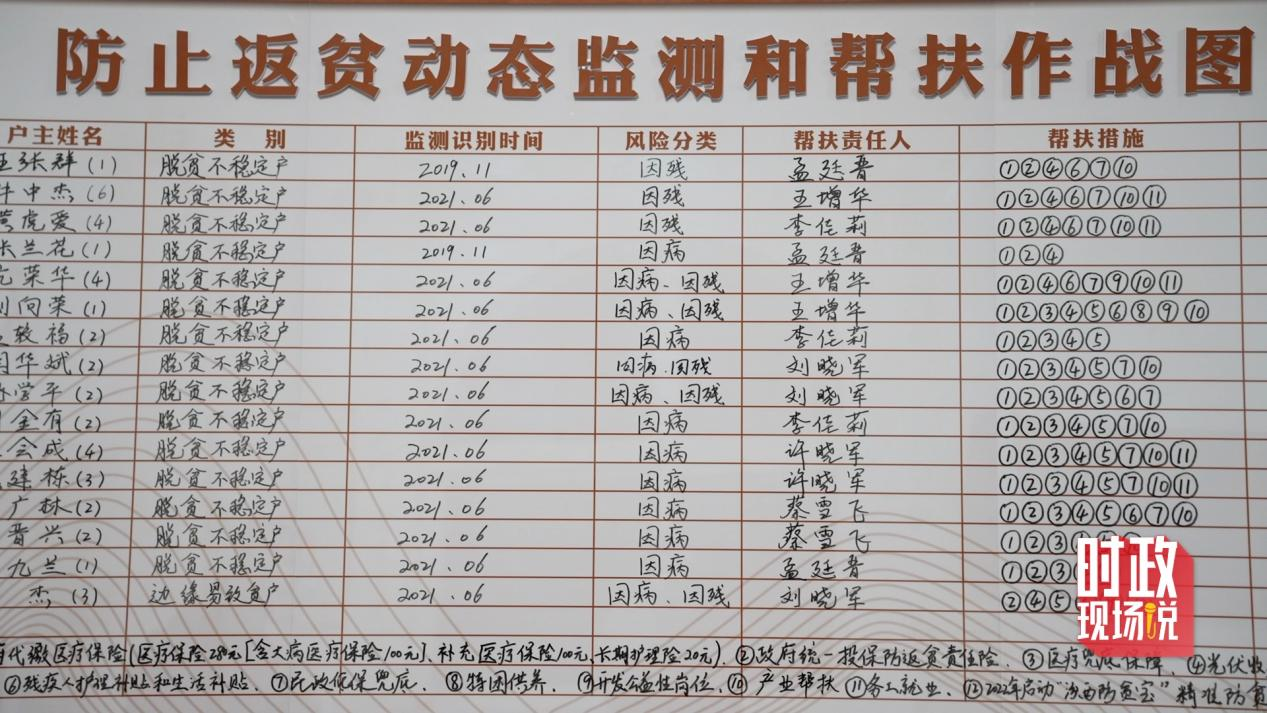 防止返贫动态监测和帮扶作战图
户主姓名 类 别 监测识别时间 风险分类 帮扶责任人 帮扶措施
张群(1) 脱贫不稳定户 2019.11 因残 孟廷晋 ①②④⑥⑦⑩
中杰(6) 脱贫不稳定户 2021.06 因残 王增华 ①②④⑥⑦⑩⑪
虎爱(4) 脱贫不稳定户 2021.06 因残 李佳莉 ①②④⑥⑦⑩⑪
兰花(1) 脱贫不稳定户 2019.11 因病 孟廷晋 ①②④
荣华(4) 脱贫不稳定户 2021.06 因病、因残 王增华 ①②④⑥⑦⑨⑩⑪
向荣(1) 脱贫不稳定户 2021.06 因病、因残 王增华 ①②③④⑤⑥⑧⑨⑩
较福(2) 脱贫不稳定户 2021.06 因病 李佳莉 ①②③④⑤
华斌(2) 脱贫不稳定户 2021.06 因病.因残 刘晓军 ①②③④⑤⑦⑩
学平(2) 脱贫不稳定户 2021.06 因病、因残 刘晓军 ①②③④⑤⑥⑦
金有(2) 脱贫不稳定户 2021.06 因病 李佳莉 ①②③④⑤⑦⑩
会成(4) 脱贫不稳定户 2021.06 因病 许晓军 ①②③④⑤⑦⑩⑪
建栋(3) 脱贫不稳定户 2021.06 因病 许晓军 ①②③④⑤⑦⑩⑪
广林(2) 脱贫不稳定户 2021.06 因病 蔡雪飞 ①②③④⑤⑥⑦⑩
晋兴(2) 脱贫不稳定户 2021.06 因病 蔡雪飞 ①②③
九兰(1) 脱贫不稳定户 2021.06 因病 孟廷晋 ①②③
杰(3) 边缘易致贫户 2021.06 因病、因残 刘晓军 ②④⑤
代缴医疗保险(医疗保险280元[含大病医疗保险100元]、补充医疗保险100元、长期护理险20元)、②政府统一投保防返贫责任险、③医疗兜底保障、④光伏收
⑥残疾人护理补贴和生活补贴、⑦民政低保兜底、⑧特困供养、⑨开发公益性岗位、⑩产业帮扶 ⑪务工就业、⑫2022年启动"汾西防贫宝"精准防贫
时政
现场说